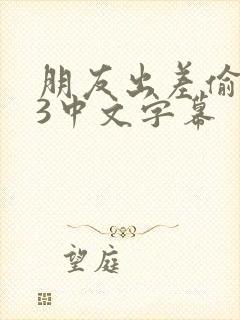 朋友出差偷
3中文字幕
望庭